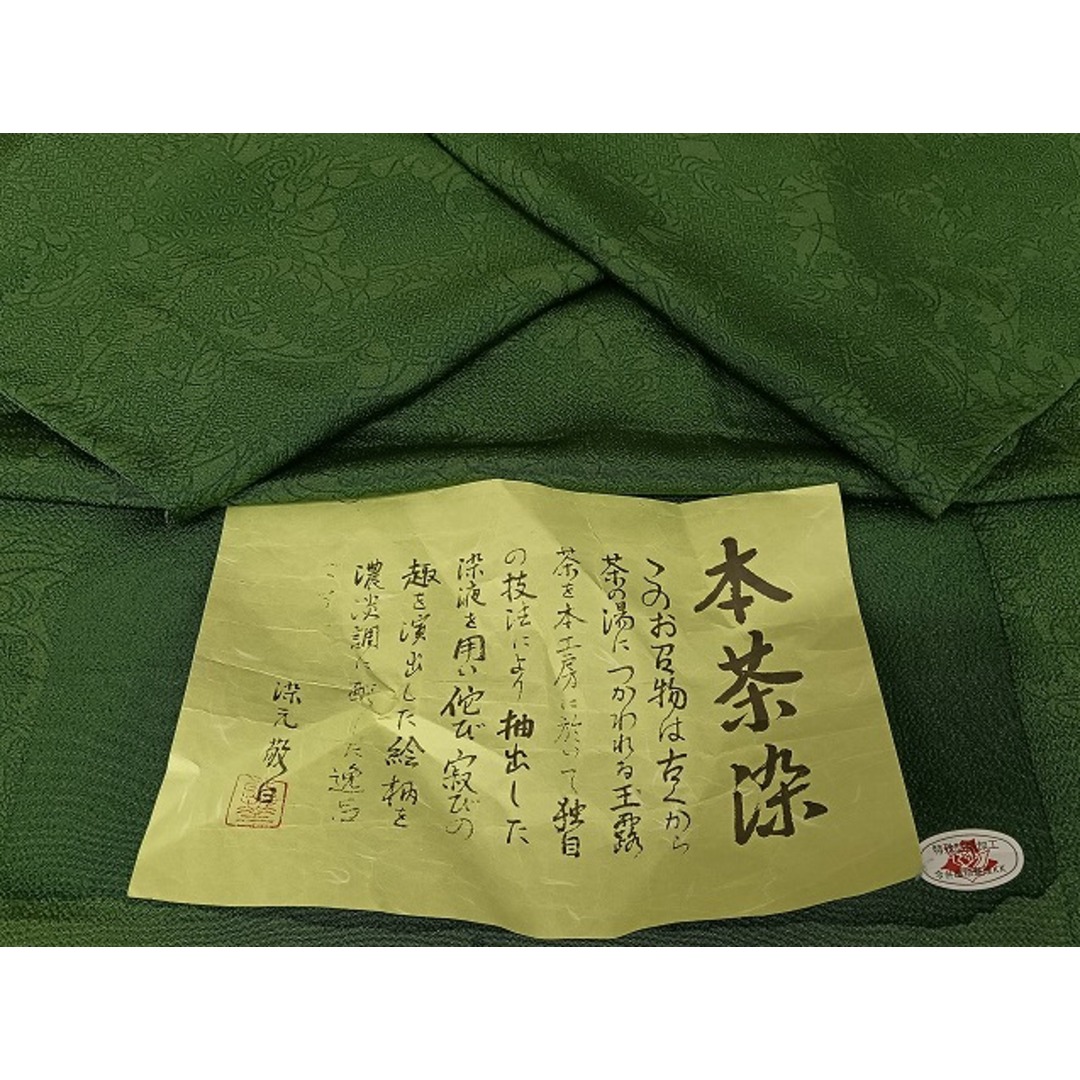 本茶染
このお召物は古くから
茶の湯につかわれる玉露
茶を本工房に於いて独自
の技法により抽出した
染液を用い侘び寂びの
趣を演出した絵柄を
濃淡調に配した逸品
染元敬白